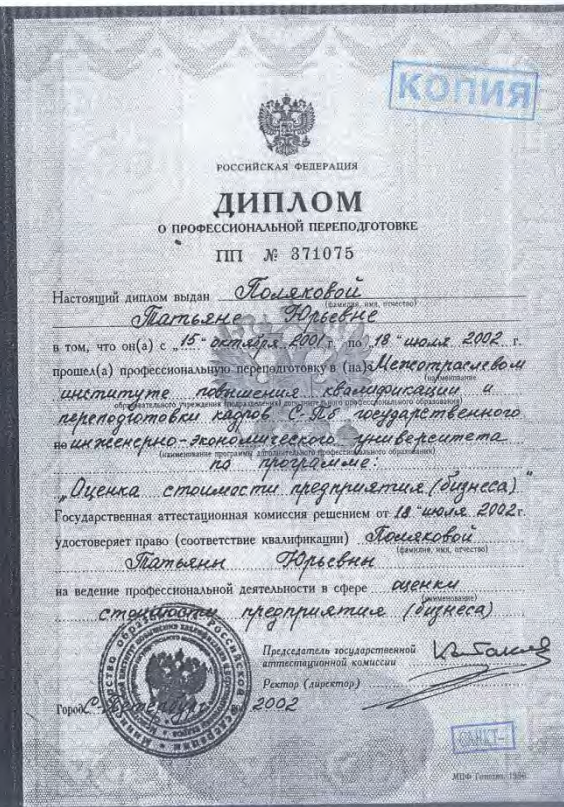 КОПИЯ
РОССИЙСКАЯ ФЕДЕРАЦИЯ
ДИПЛОМ
О ПРОФЕССИОНАЛЬНОЙ ПЕРЕПОДГОТОВКЕ
ПП № 371075
Настоящий диплом выдан Поляковой
(фамилия, имя, отчество)
Татьяне Юрьевне
в том, что он(а) с „15" октября 2001 г. по „18" июля 2002 г.
прошел(а) профессиональную переподготовку в (на) Межотраслевом
(наименование
институте повышения квалификации и
образовательного учреждения (подразделения) дополнительного профессионального образования)
переподготовки кадров С-Пб государственного
по инженерно-экономического университета
(наименование программы дополнительного профессионального образования)
по программе:
„Оценка стоимости предприятия (бизнеса)"
Государственная аттестационная комиссия решением от 18 "июля 2002г.
удостоверяет право (соответствие квалификации) Поляковой
(фамилия, имя, отчество)
Татьяны Юрьевны
на ведение профессиональной деятельности в сфере оценки
(наименование)
стоимости предприятия (бизнеса)
Председатель государственной
аттестационной комиссии
Ректор (директор)
Город С-Петербург 2002
САНКТ-
МПФ Гознака, 1996.